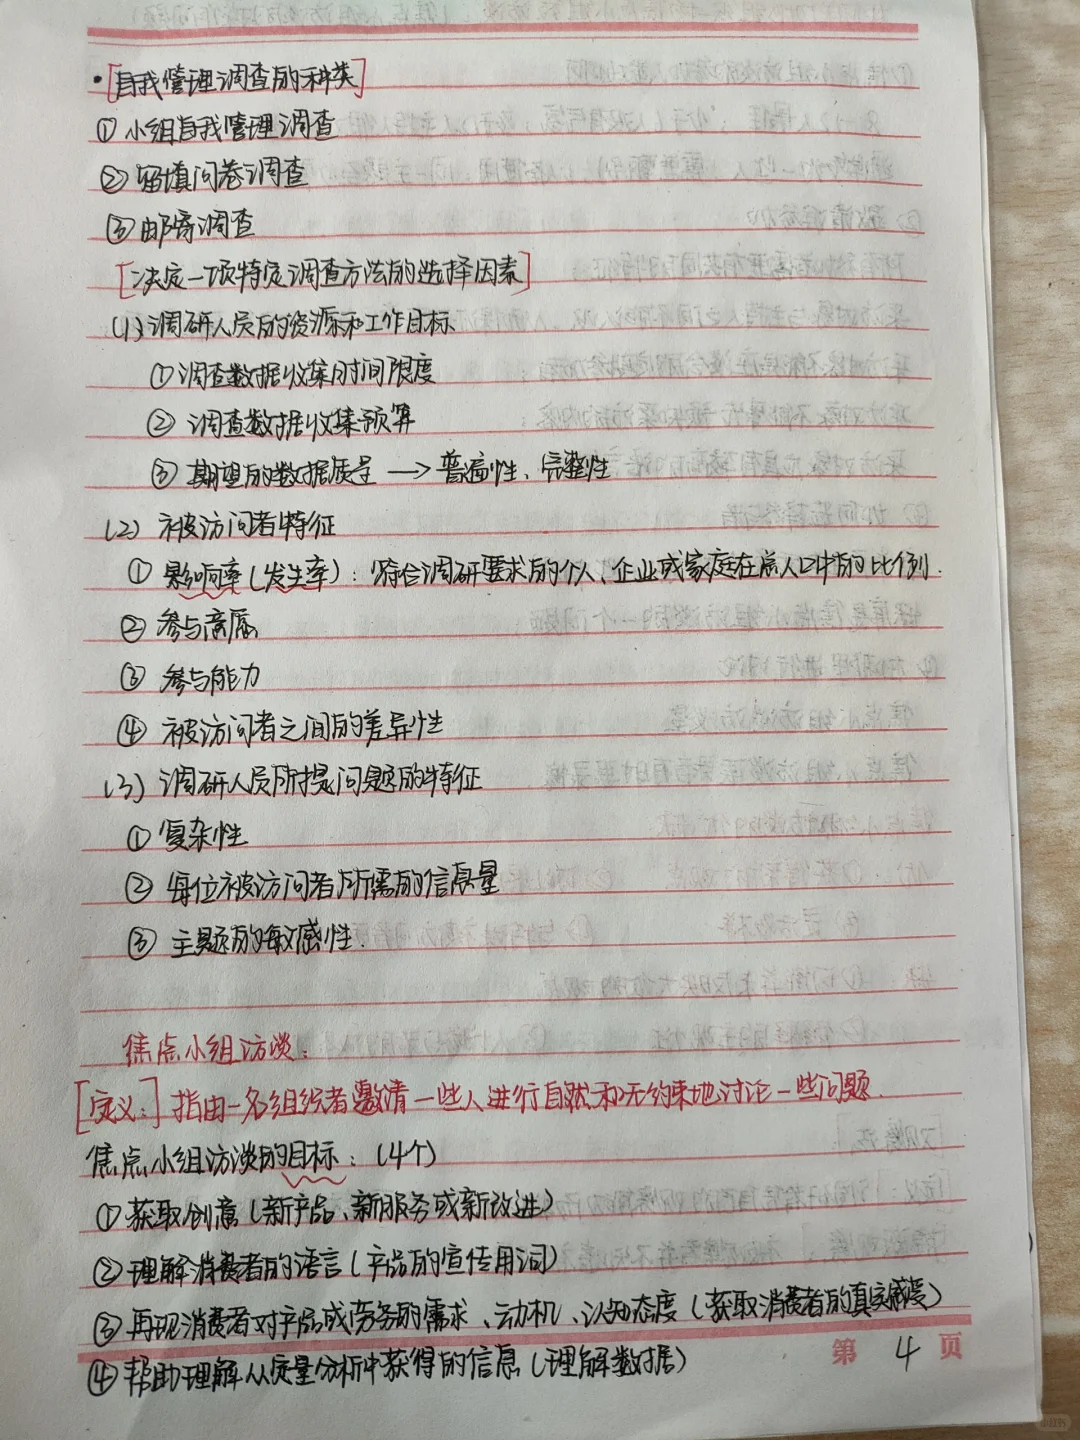 ·[自我管理调查的种类]
①小组自我管理调查
②留填问卷调查
③邮寄调查
[决定一项特定调查方法的选择因素]
(1)调研人员的资源和工作目标
①调查数据收集时间限度
②调查数据收集预算
③期望的数据质量→普遍性、完整性
(2)被访问者特征
①影响率(发生率):符合调研要求的个人、企业或家庭在总人口中的比例.
②参与意愿
③参与能力
④被访问者之间的差异性
(3)调研人员所提问题的特征
①复杂性
②每位被访问者所需的信息量
③主题的敏感性.
焦点小组访谈:
[定义:]指由一名组织者邀请一些人进行自然和无约束地讨论一些问题.
焦点小组访谈的目标:(4个)
①获取创意(新产品、新服务或新改进)
②理解消费者的语言(产品的宣传用词)
③再现消费者对产品或劳务的需求、动机、认知态度(获取消费者的真实感受)
④帮助理解从定量分析中获得的信息(理解数据)
第 4 页